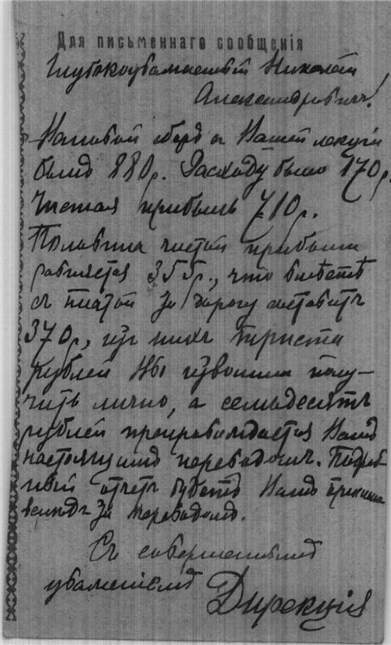 Для письменнаго сообщенія
Глубокоуважаемый Николай
Александровичъ!
Валовой сборъ съ Вашей лекціи
былъ 880р. Расходу было 170р.
Чистая прибыль 710р.
Половина чистой прибыли
равняется 355р., что вмѣстѣ
съ платой за дорогу составитъ
370р., изъ нихъ триста
рублей Вы изволили полу-
чить лично, а семьдесятъ
рублей препровождается Вамъ
настоящимъ переводомъ. Подроб-
ный отчетъ будетъ Вамъ
за переводомъ.
Съ совершеннымъ
уваженіемъ
Дирекція